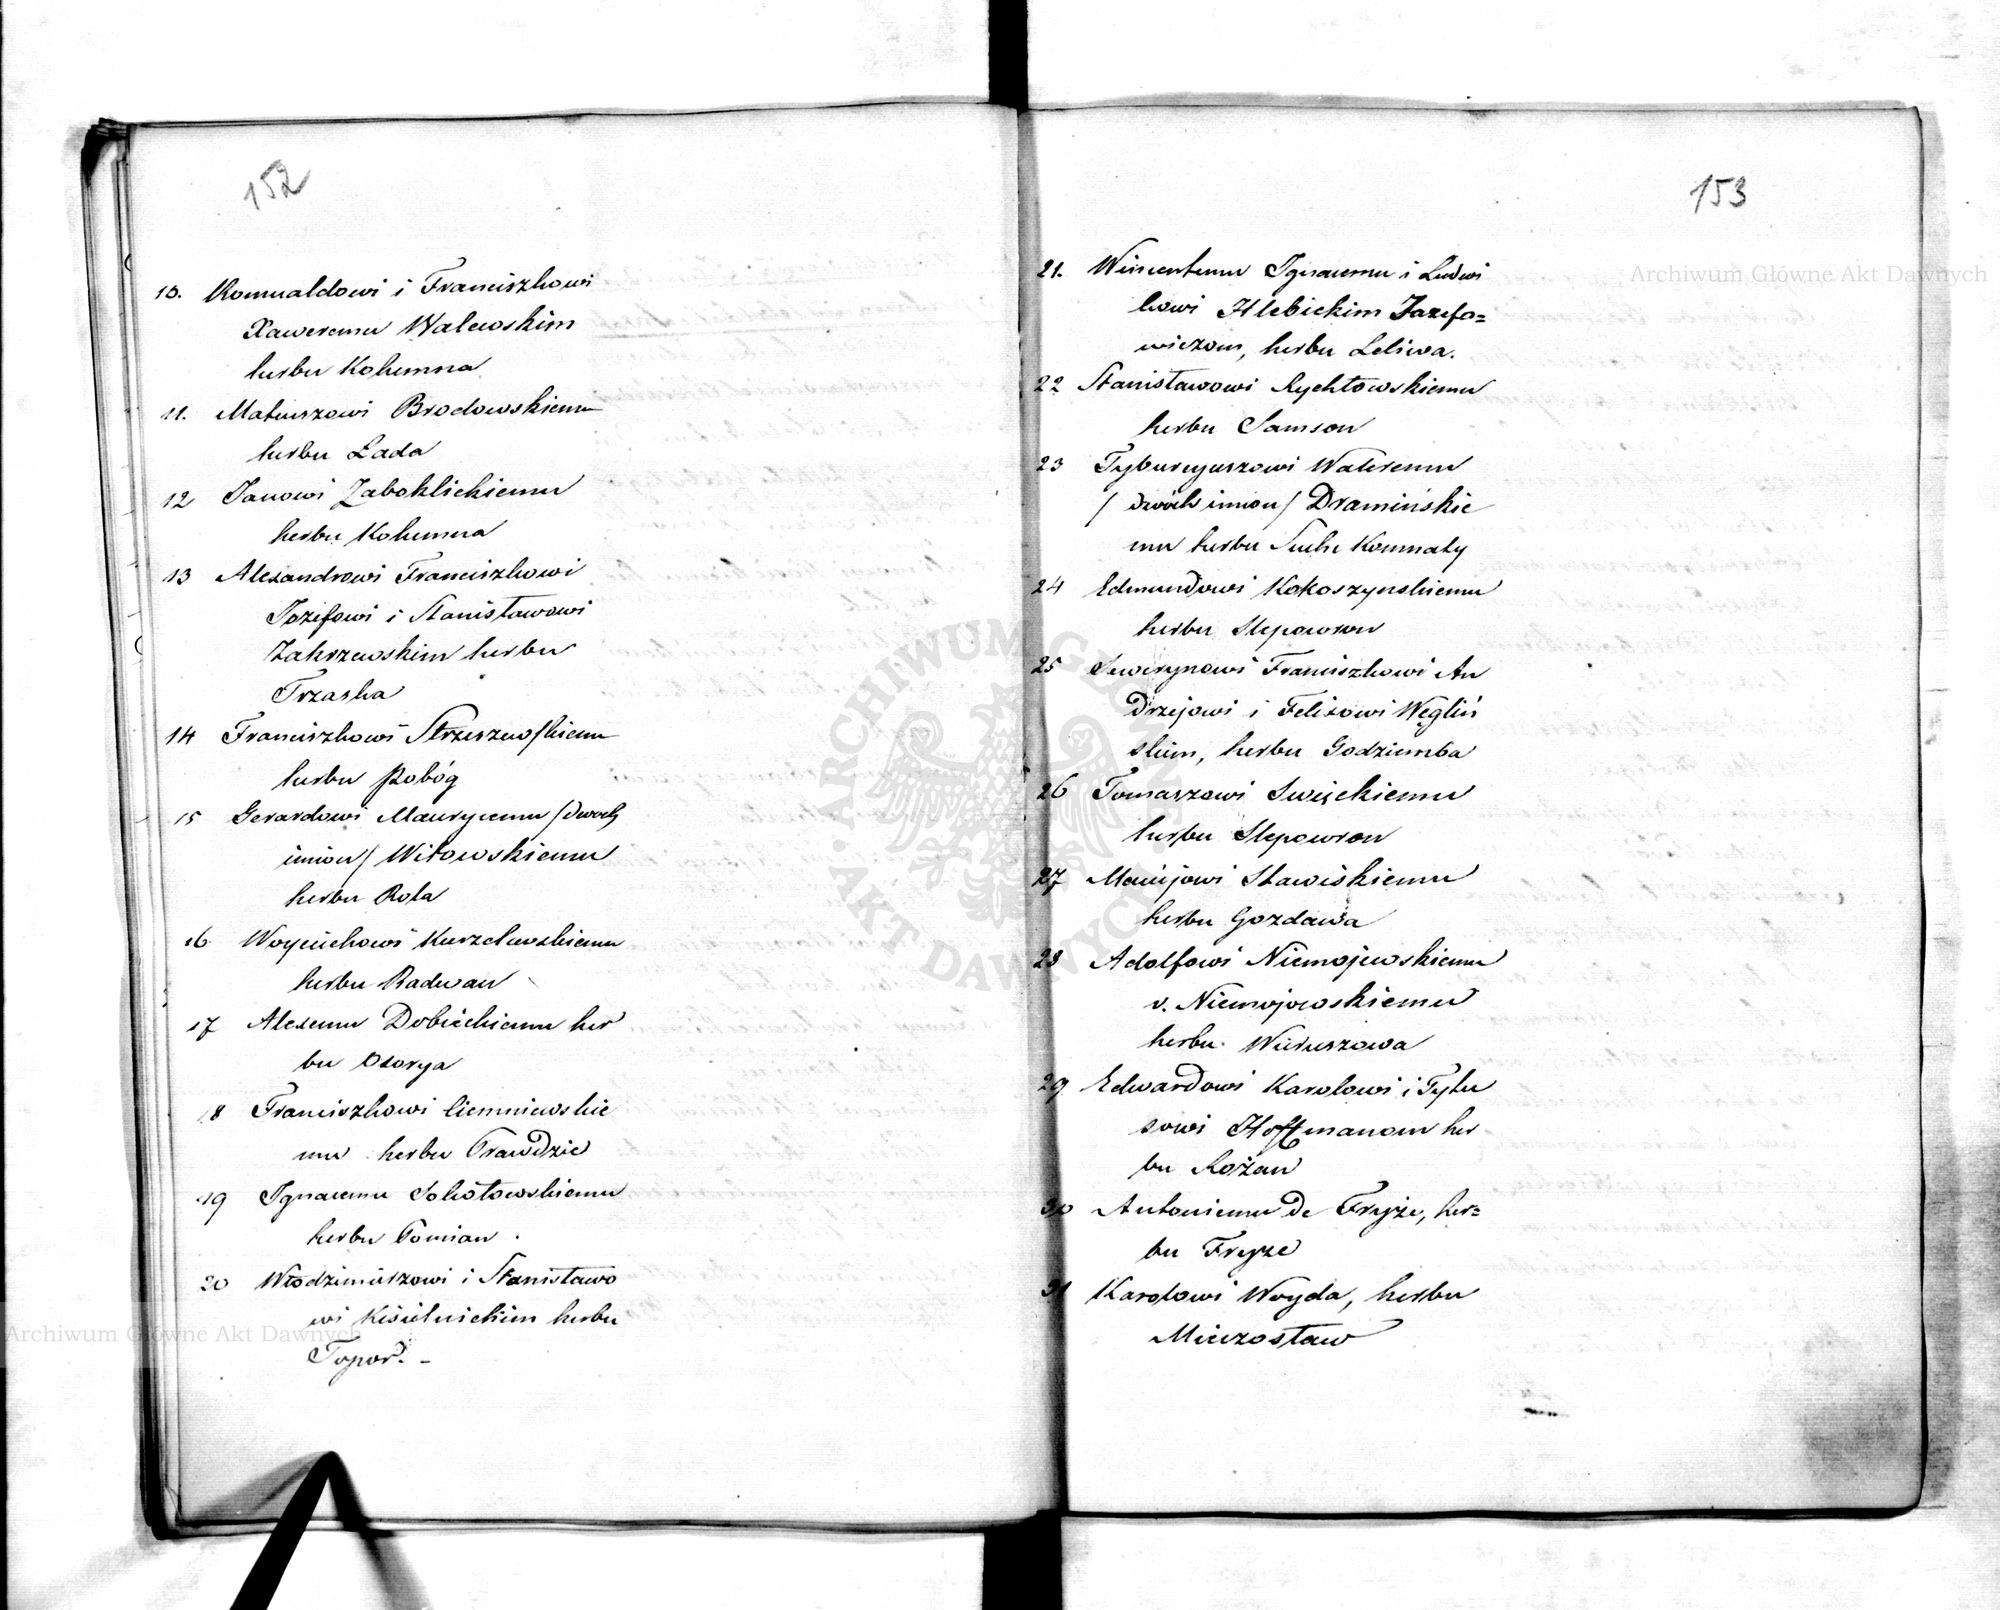 152
10. Romualdowi i Franciszkowi
Xaweremu Walewskim
herbu Kolumna
11. Mateuszowi Brodowskiemu
herbu Łada
12 Janowi Zaboklickiemu
herbu Kolumna
13 Alexandrowi Franciszkowi
Jozefowi i Stanisławowi
Zakrzewskim herbu
Trzaska
14 Franciszkowi Strzeszewskiemu
herbu Pobóg
15 Gerardowi Maurycemu /dwoch
imion/ Witowskiemu
herbu Rola
16 Woyciechowi Kurzelewskiemu
herbu Radwan
17 Alexemu Dobieckiemu her
bu Osorya
18 Franciszkowi Ciemniewskie
mu herbu Prawdzic
19 Ignacemu Sokołowskiemu
herbu Pomian
20 Włodzimirzowi i Stanisławo
wi Kisielnickim herbu
Topor. -
153
21. Wincentemu Ignacemu i Ludwi
kowi Hlebickim Jozefo=
wiczom, herbu Leliwa.
22 Stanisławowi Rychłowskiemu
herbu Samson
23 Tyburcyuszowi Waleremu
/ dwóch imion / Dramińskie
mu herbu Suche Komnaty
24 Edmundowi Kokoszynskiemu
herbu Slepowron
25 Sewerynowi Franciszkowi An
drzejowi i Felixowi Węgliń
skim, herbu Godziemba
26 Tomaszowi Swięckiemu
herbu Slepowron
27 Maciejowi Stawiskiemu
herbu Gozdawa
28 Adolfowi Niemojewskiemu
v. Niemojowskiemu
herbu Wieruszowa
29 Edwardowi Karolowi i Tytu
sowi Hoffmanom her
bu Rożan
30 Antoniemu de Fryze, her=
bu Fryze
31 Karolowi Woyda, herbu
Mieczosław
Archiwum Główne Akt Dawnych
Archiwum Główne Akt Dawnych
ARCHIWUM GŁÓWNE AKT DAWNYCH